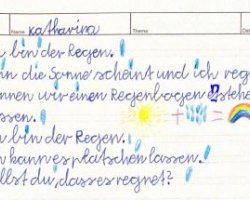 Name Katharina Thema Da
h bin der Regen.
nn die Sonne scheint und ich reg
nnen wir einen Regenbogen entstehe
ssen. + =
h bin der Regen.
h kann es platschen lassen.
llst du, dass es regnet?